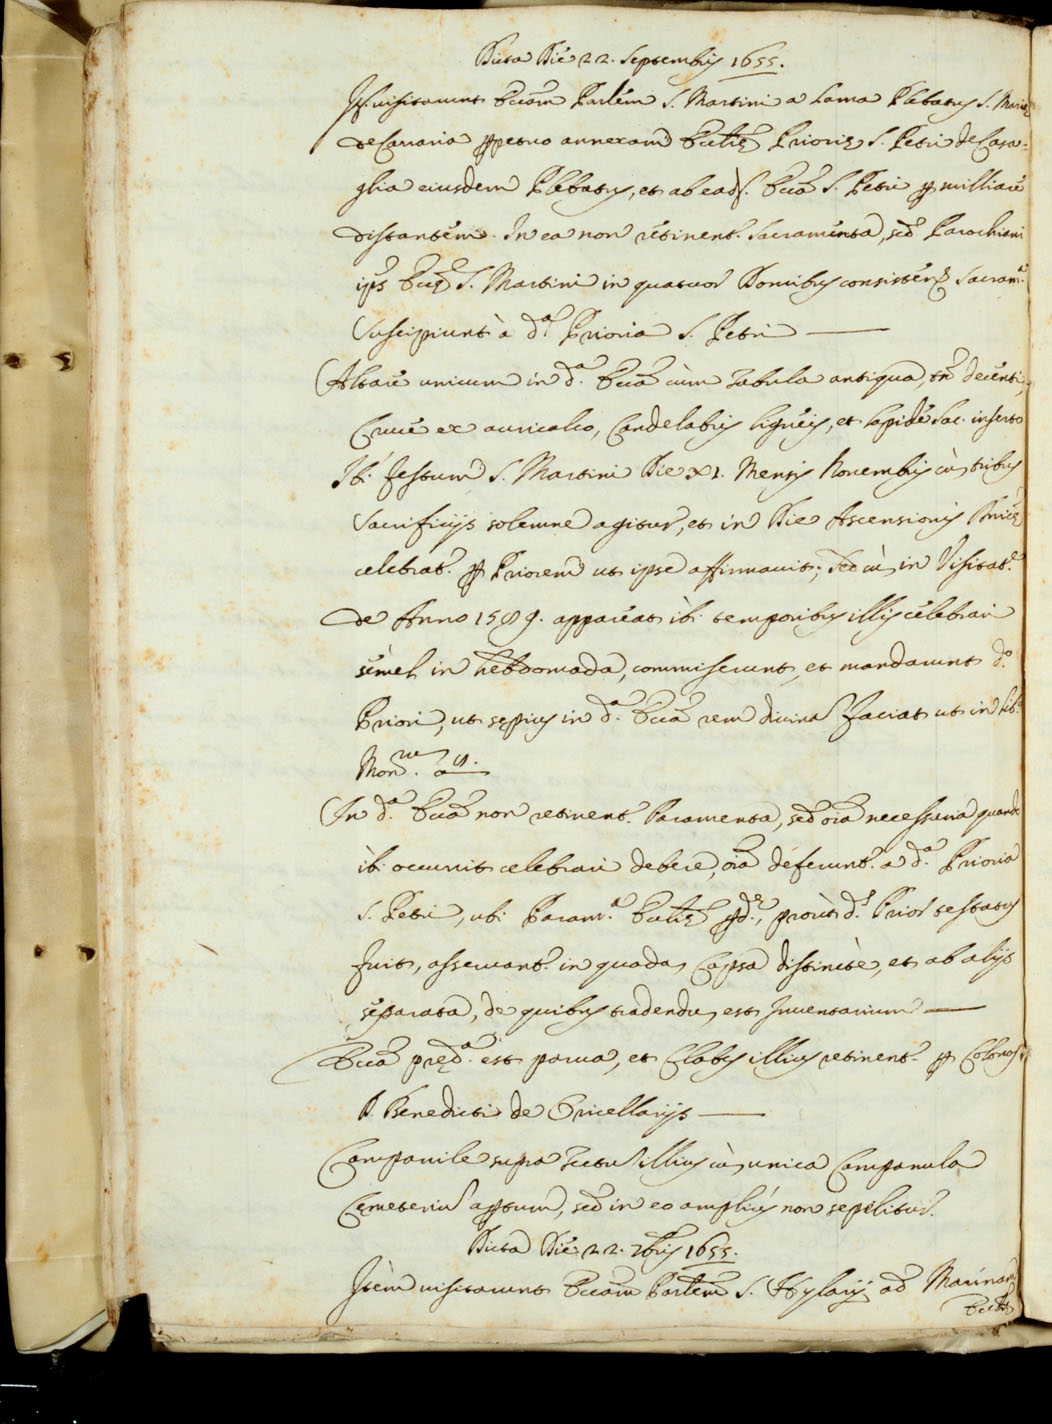 Dicta Die 22. Septembris 1655.
It. visitarunt Eccam Parlem S. Martini a Lama Plebatus S. Mariæ
de Carraria ppetuo annexam Ecclię Prioris S. Petri de Casa-
glia eiusdem Plebatus, et ab ead. Ecca S. Petri p milliare
distantem. In ea non retinent. Sacramenta, sed Parochiani
ips Eccę S. Martini in quatuor Domibus consistens Sacram.ta
Suscipiunt à d.a Prioria S. Petri
Altare unicum in d.a Ecca cùm Tabula antiqua, tn decenti,
Cruce ex auricalco, Candelabris ligneis, et lapide Sac. inserto
Ibi festum S. Martini Die XI. Mensis Novembris cù tribus
Sacrificijs solemne agitur, et in Die Ascensionis Dnicę
celebrat. p Priorem ut ipse affirmavit; Sed cù in Visitat.e
de Anno 1589. appareat ibi temporibus illis celebrari
semel in hebdomada, commiserunt, et mandarunt d.o
Priori, ut sępius in d.a Ecca rem divina faciat ut in lib.o
Mon.
In d.a Ecca non retinent. Paramenta, sed oia necessaria quando
ibi occurrit celebrari debere, oia deferunt. a d.a Prioria
S. Petri, ubi Param.ta Ecclię pd.ę, prout d.s Prior testatus
fuit, asservant. in quada Capsa distincte, et ab alijs
separata, de quibus tradendu est Inventarium
Ecca pręd.a est parva, et Claves illius retinent. p Colonos
D. Benedicti de Oricellarijs
Campanile supra Tectu illius cù unica Campanula
Cemeteriu aptum, sed in eo amplius non sepelitur.
Dicta Die 22. 7bris 1655.
Item visitarunt Eccam Parlem S. Hylarij ad Marinam